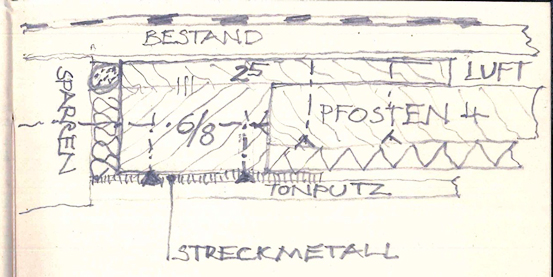 BESTAND
25
LUFT
SPARREN
6/8
PFOSTEN 4
TONPUTZ
STRECKMETALL